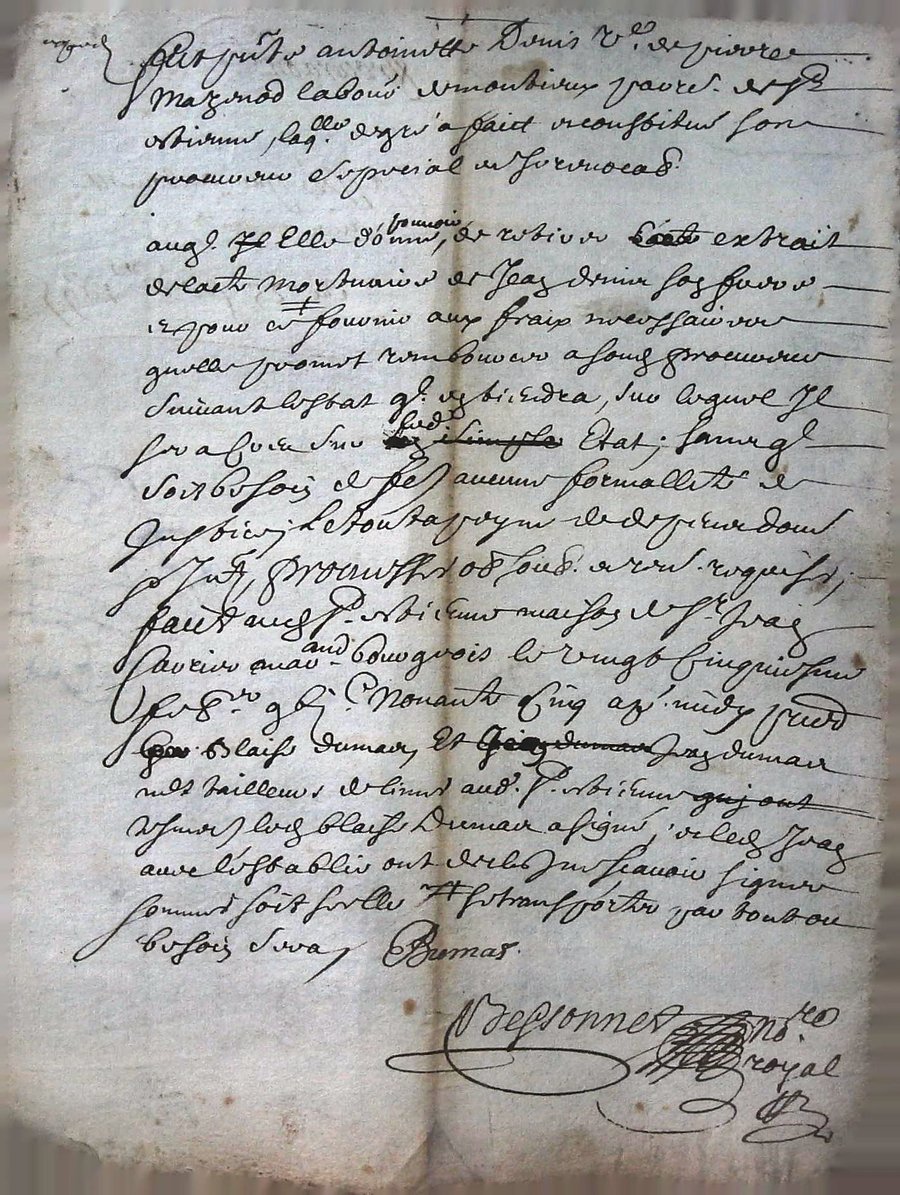 fut pnte antoinette Denis vve de pierre
Mazenod labour de montieux parr. de st
estienne, laqlle de gré a faict et constitué son
procureur especial et irrevocab
auql Il Elle donne pouvoir, de retirer extrait
de lacte Mortuaire de Jean denis son frere
et pour ce # fournir aux fraix necessaires
quelle promet rembourcer a sond procureur
suivant lestat ql en tiendra, sur lequel Il
sera creu sur sond simple Etat; sans ql
soit besoin de faire aucune formallité de
Justice; Le tout a peyne de despens dom
Int, promesses obligs. et ren. requises;
faict aud st. estienne maison de sr. Jean
mard bourgeois le vingt cinquiesme
febr. Nonante cinq apr. midy pnts
blaise dumas, Et Jean dumas Jean dumas
tailleurs de limes aud. st. estienne qui ont
led blaise Dumas a signé, et led Jean
avec lestablie ont declaré ne scavoir signer
sommes soit seelle # se transporter par tout ou
besoin sera, Dumas
Bessonnet nore
royal